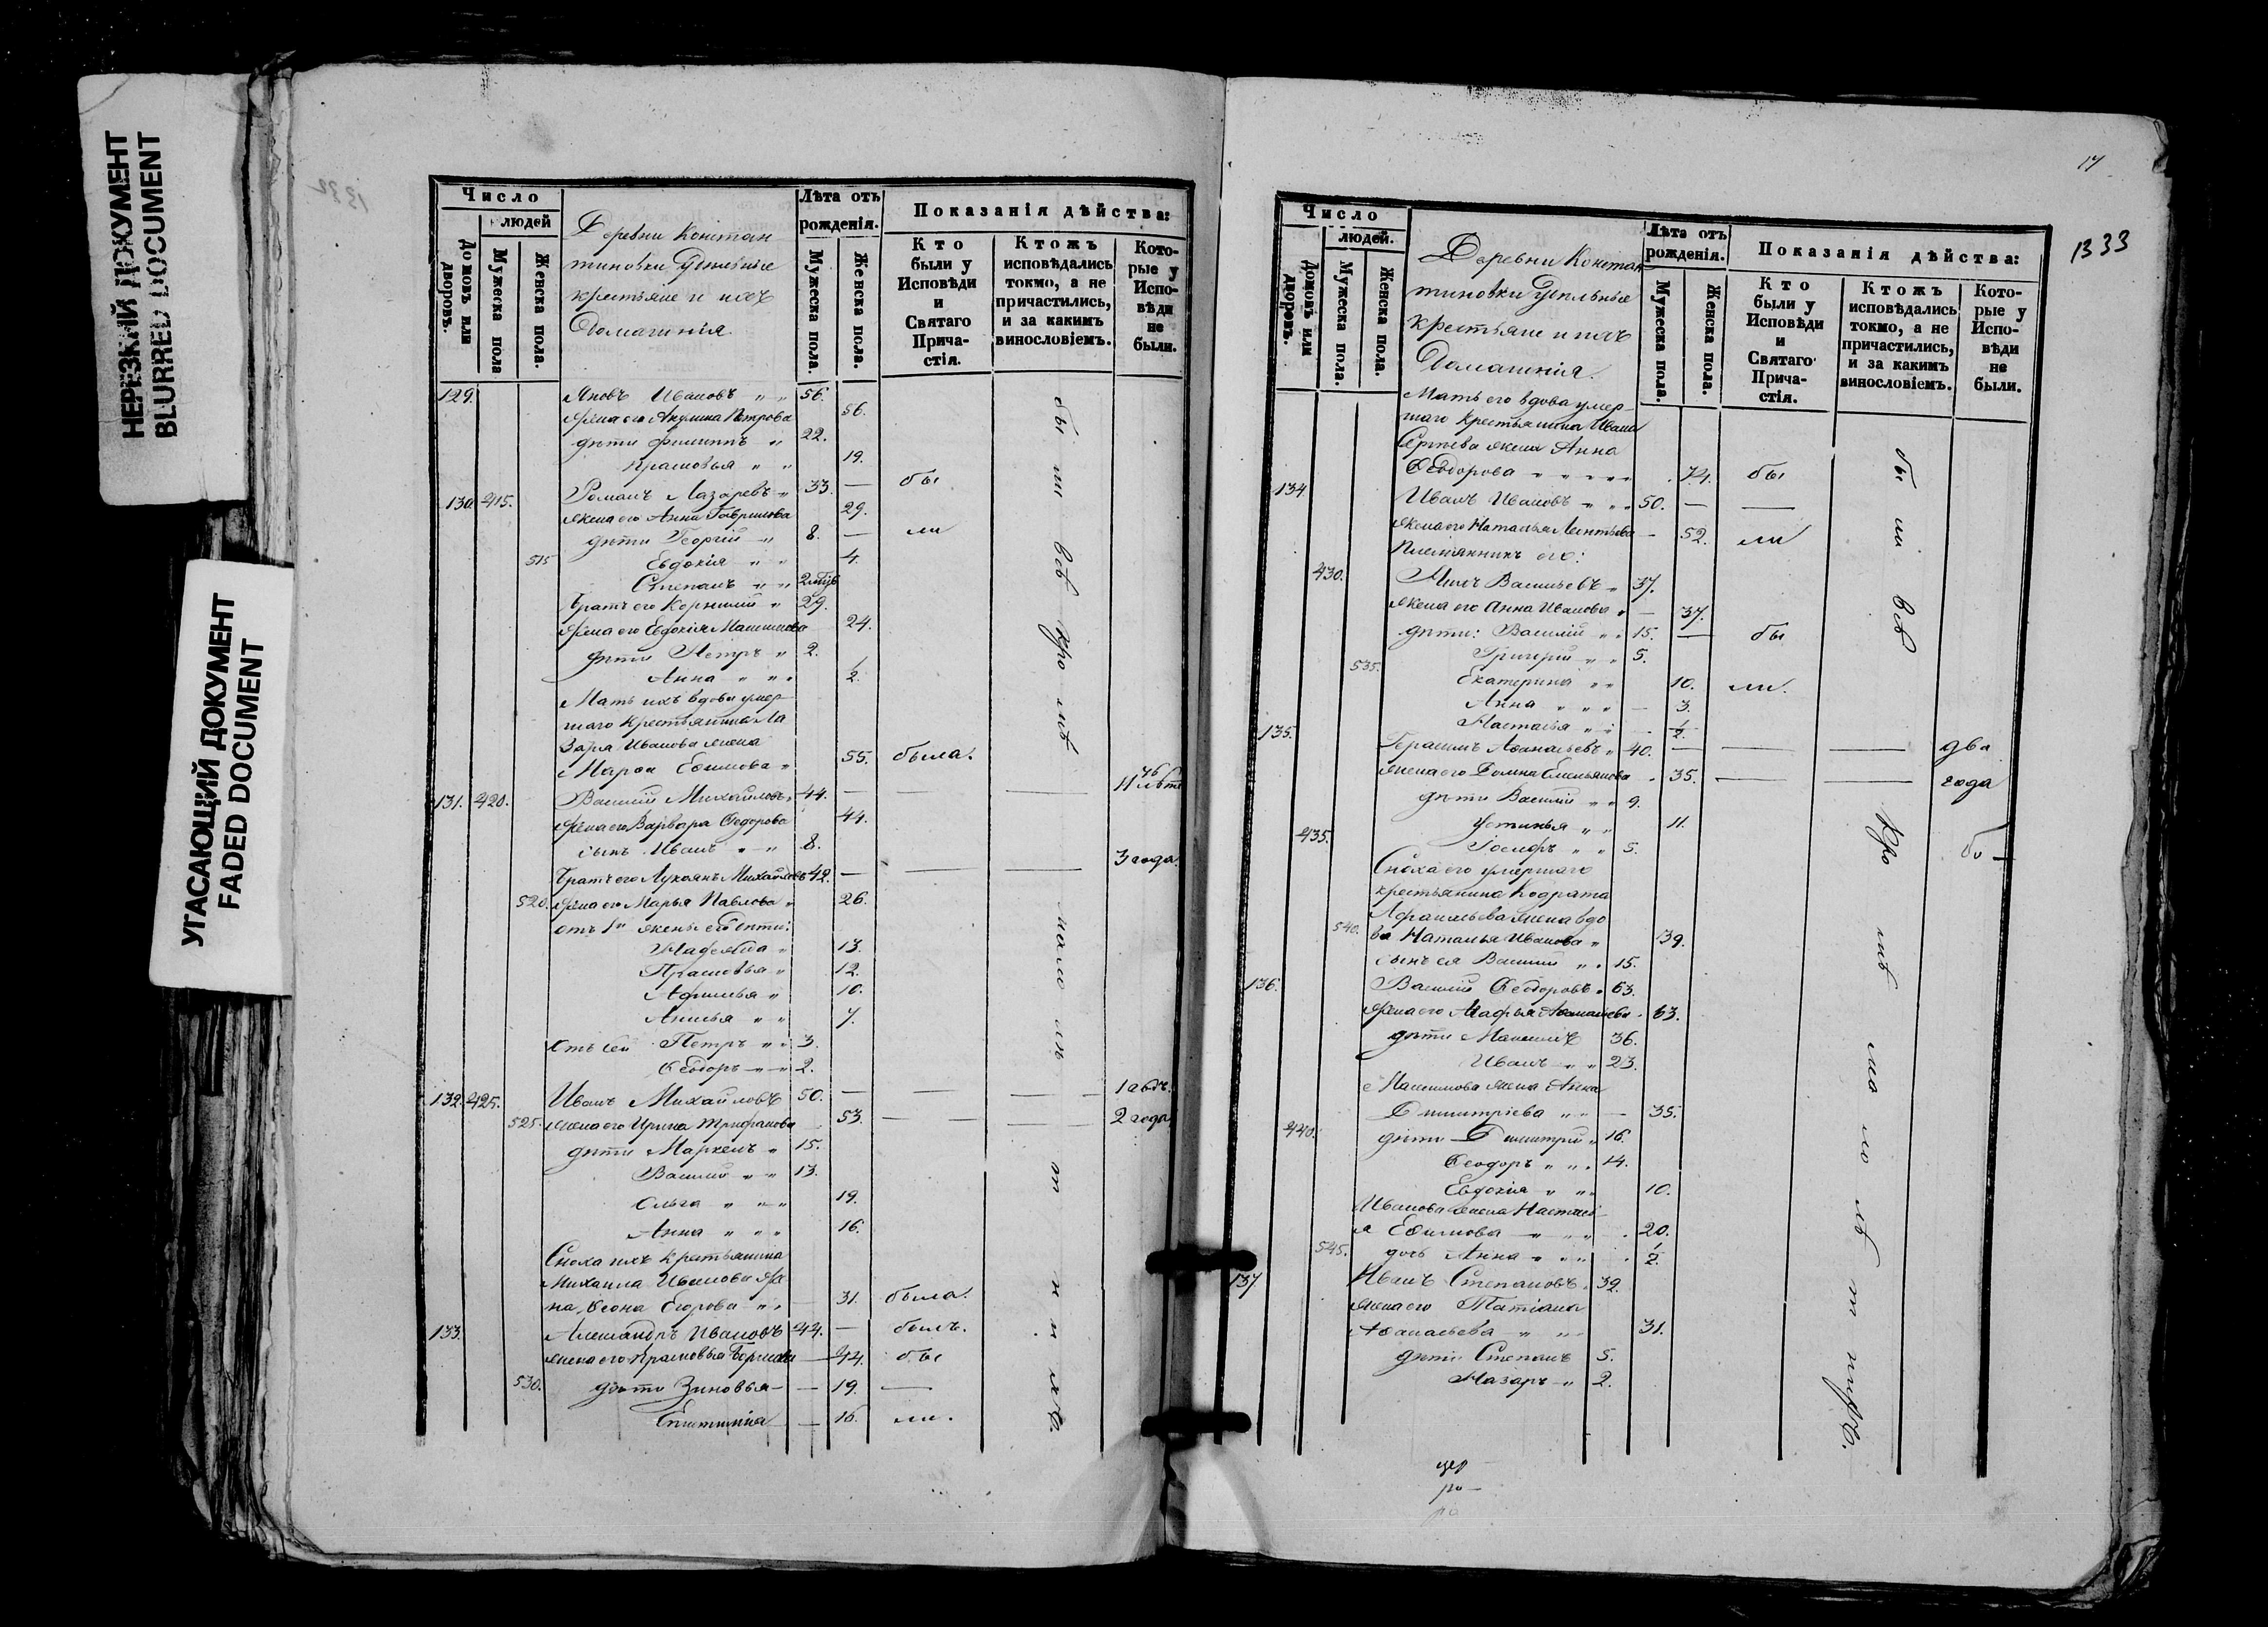 НЕРЕЗКИЙ ДОКУМЕНТ
BLURRED DOCUMENT
УГАСАЮЩИЙ ДОКУМЕНТ
FADED DOCUMENT
Число
людей
Домовъ или дворовъ.
Мужеска пола
Женска пола.
Деревни Констан
тиновки Удѣльные
крестьяне и ихъ
Домашнія.
Лѣта отъ
рожденія.
Мужеска пола.
Женска пола.
Показанія дѣйства:
Кто
были у
Исповѣди
и
Святаго
Прича-
стія.
Ктожъ
исповѣдались
токмо, а не
причастились,
и за какимъ
винословіемъ.
Кото-
рые у
Испо-
вѣди
не
были.
129. Яковъ Ивановъ " " 56.
Жена его Акулина Петрова 56.
дѣти Филиппъ " 22.
Прасковья " " 19.
130. 415. Романъ Лазаревъ " 33. — бы
жена его Анна Гаврилова 29.
дѣти Георгій " 8. — ли
515 Евдокія " " 4.
Степанъ " " 2
Братъ его Корнилій " 29.
Жена его Евдокія 24.
дѣти Петръ " 2.
Анна " " " 1/2
Мать ихъ вдова умер
шаго крестьянина Ла
заря Иванова жена
Марѳа Ефимова " 55. была.
131. 420. Василій Михайловъ " 44. — — — 11 лѣтъ
Жена его Варвара Ѳедорова 44.
сынъ Иванъ " " 8.
Братъ его Лукьянъ Михайловъ 42. — — — 3 года.
520. Жена его Марья Павлова " 26.
отъ 1й жены его дѣти:
Надежда " 13.
Прасковья " 12.
Афимья " 10.
Анисья " " 7.
Отъ сей Петръ " " 3.
Ѳеодоръ " " 2.
132. 425. Иванъ Михайловъ 50. — — —
525. жена его Ирина Трифонова 53. — — 2 года
дѣти Маркелъ " 15.
Василій " " 13.
Ольга " " " 19.
Анна " " " 16.
Сноха ихъ крестьянина
Михаила Иванова же
на Егорова " " — 31. была.
133. Александръ Ивановъ 44. — былъ.
жена его Прасковья — 44. бы
530. дѣти Зиновья — — 19. —
— 16. ли.
бы ли всѣ кро мѣ мало лѣ т н и хъ.
17
1333
Число
людей.
Домовъ или дворовъ.
Мужеска пола.
Женска пола.
Деревни Констан
тиновки Удѣльные
крестьяне и ихъ
Домашнія.
Лѣта отъ
рожденія.
Мужеска пола.
Женска пола.
Показанія дѣйства:
Кто
были у
Исповѣди
и
Святаго
Прича-
стія.
Ктожъ
исповѣдались
токмо, а не
причастились,
и за какимъ
винословіемъ.
Кото-
рые у
Испо-
вѣди
не
были.
Мать его вдова умер-
шаго крестьянина Ивана
Сергѣева жена Анна
Ѳеодорова " " " " " 74. бы
134. Иванъ Ивановъ " " " 50. — —
жена его Наталья Леонтьева — 52. ли
Племянникъ его:
430. Васильевъ " 37.
жена его Анна Иванова " — 37.
дѣти: Василій " " 15. — бы
Григорій " " 5.
535. Екатерина " " 10. ли.
Анна " " " — 3.
Настасья " " 1/2
135. Герасимъ Аѳанасьевъ " 40. — — — два
жена его Домна Емельянова " 35. — — года
дѣти Василій " " 9.
Устинья " " 11.
435. Іосифъ " " 5.
Сноха его умершаго
крестьянина Кодрата
Афанасьева жена вдо
540. ва Наталья Иванова " 39.
сынъ ея Василій " " 15.
136. Василій Ѳеодоровъ " 63.
Жена его Агафья 63.
дѣти Максимъ 36.
Иванъ " " 23.
Максимова жена Анна
Димитріева " " — 35.
440. дѣти Димитрій " 16.
Ѳеодоръ " " " 14.
Евдокія " " " 10.
Иванова жена Настась
я Ефимова " " " 20.
545. дочь Анна " " " 1/2
137. Иванъ Степановъ " 39.
жена его Татіана
Аѳанасьева " " " 31.
дѣти Степанъ 5.
Назаръ " 2.
бы ли всѣ кро мѣ ма ло лѣ т нихъ.